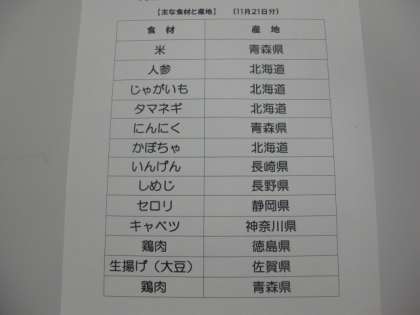 【主な食材と産地】 (11月21日分)
食材 産地
米 青森県
人参 北海道
じゃがいも 北海道
タマネギ 北海道
にんにく 青森県
かぼちゃ 北海道
いんげん 長崎県
しめじ 長野県
セロリ 静岡県
キャベツ 神奈川県
鶏肉 徳島県
生揚げ(大豆) 佐賀県
鶏肉 青森県